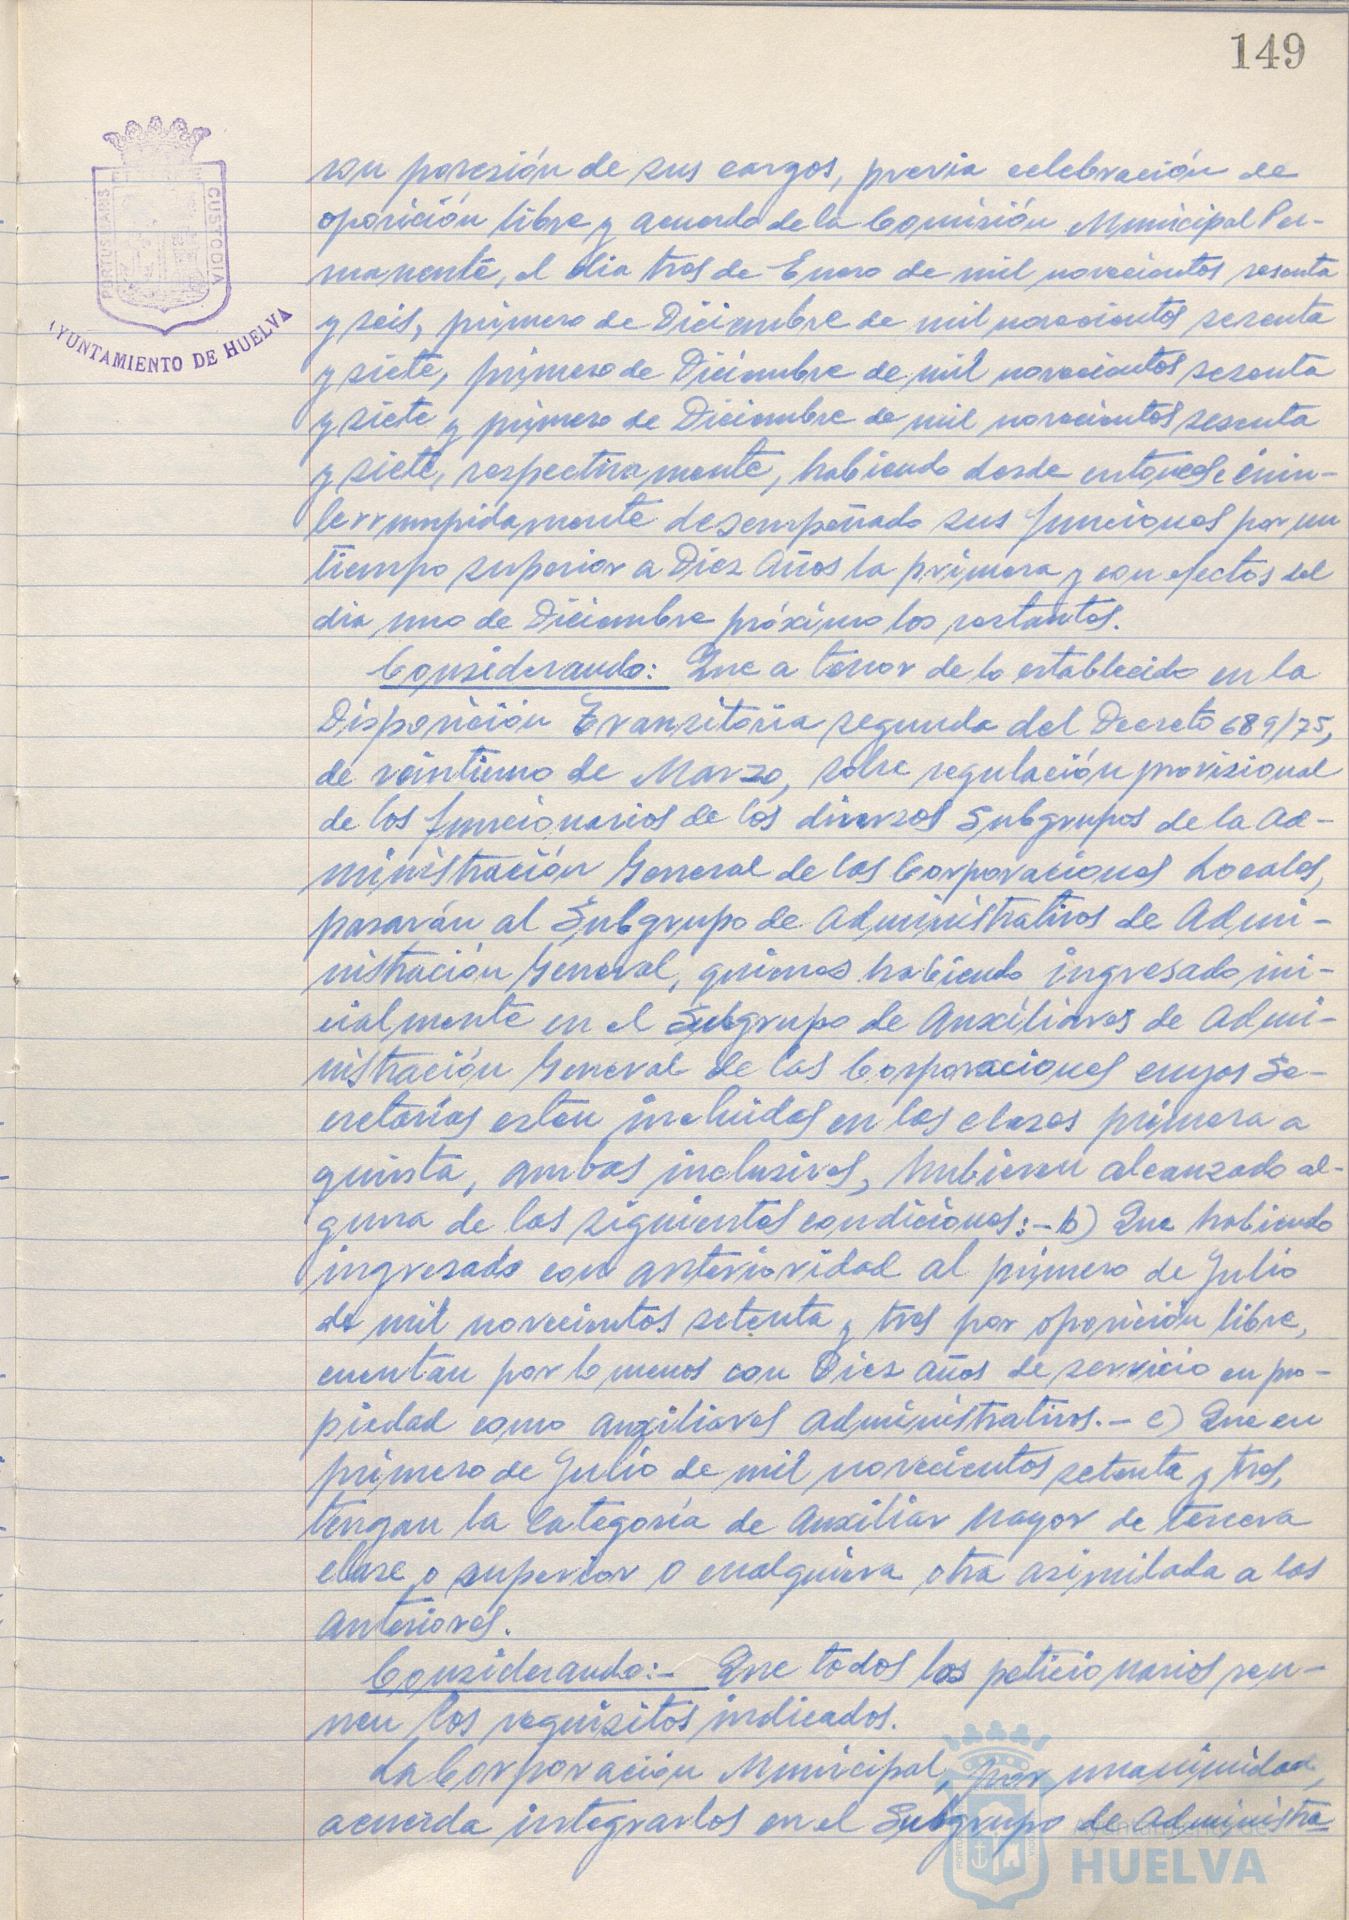 149
PORTUS MARIS
CUSTODIA
AYUNTAMIENTO DE HUELVA
ron posesión de sus cargos, previa celebración de
oposición libre y acuerdo de la Comisión Municipal Per-
manente, el día tres de Enero de mil novecientos sesenta
y seis, primero de Diciembre de mil novecientos sesenta
y siete, primero de Diciembre de mil novecientos sesenta
y siete y primero de Diciembre de mil novecientos sesenta
y siete, respectivamente, habiendo desde entonces e inin-
terrumpidamente desempeñado sus funciones por un
tiempo superior a Diez Años la primera y con efectos del
día uno de Diciembre próximo los restantes.
Considerando: Que a tenor de lo establecido en la
Disposición Transitoria segunda del Decreto 689/75,
de veintiuno de Marzo, sobre regulación provisional
de los funcionarios de los diversos Subgrupos de la Ad-
ministración General de las Corporaciones Locales,
pasarán al Subgrupo de Administrativos de Admi-
nistración General, quienes habiendo ingresado ini-
cialmente en el Subgrupo de Auxiliares de Admi-
nistración General de las Corporaciones cuyas Se-
cretarías esten incluidas en las clases primera a
quinta, ambas inclusives, hubieren alcanzado al-
guna de las siguientes condiciones:- b) Que habiendo
ingresado con anterioridad al primero de Julio
de mil novecientos setenta y tres por oposición libre,
cuentan por lo menos con Diez años de servicio en pro-
piedad como auxiliares administrativos.- c) Que en
primero de Julio de mil novecientos setenta y tres,
tengan la categoría de Auxiliar Mayor de tercera
clase o superior o cualquiera otra asimilada a las
anteriores.
Considerando:- Que todos los peticionarios reu-
nen los requisitos indicados.
La Corporación Municipal, por unanimidad,
acuerda integrarlos en el Subgrupo de Administra
Ayuntamiento de
HUELVA